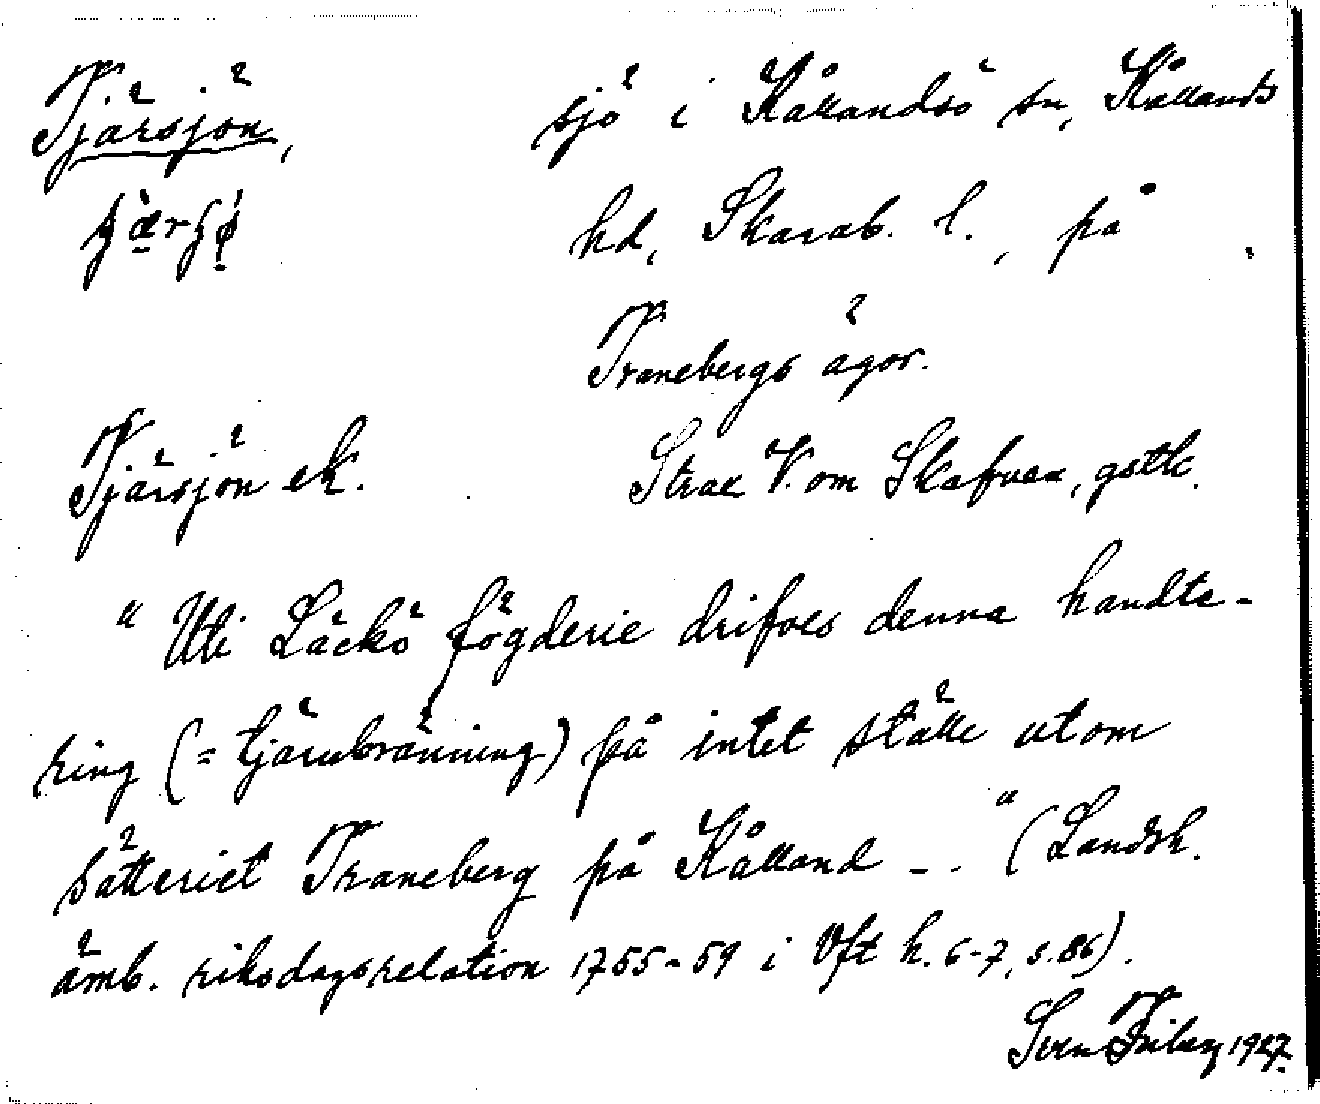 Tjärsjön, sjö i Kållandsö sn, Kållands
hd, Skarab. l., på
Tranebergs ägor.
Tjärsjön ek. Strax V. om Skafvea, gstk.
"Uti Läckö fögderie drifves denna handte-
ring (= tjärubränning) på intet ställe utom
säteriet Traneberg på Kålland - - " (Landsh.
ämb. riksdagsrelation 1755-59 i Vft h. 6-7, s. 86).
Sven Friberg 1927.